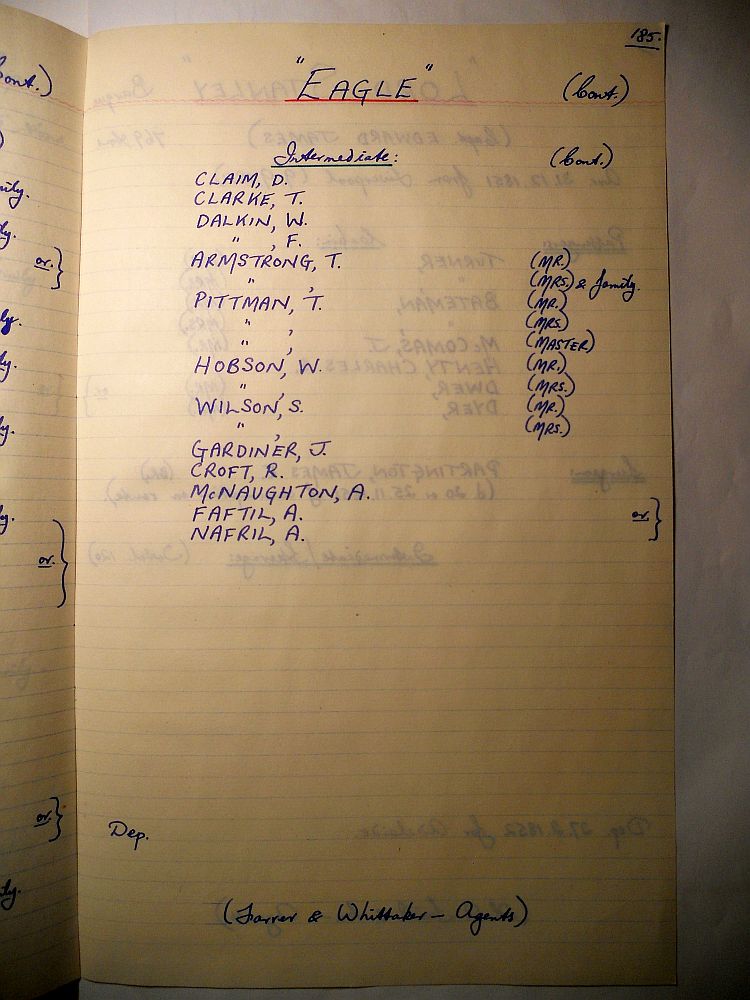 185.
"EAGLE" (Cont.)
Intermediate: (Cont.)
CLAIM, D.
CLARKE, T.
DALKIN, W.
" , F.
ARMSTRONG, T. (MR.)
" , (MRS.) & family.
PITTMAN, T. (MR.)
" , (MRS.)
" , (MASTER)
HOBSON, W. (MR.)
" , (MRS.)
WILSON, S. (MR.)
" , (MRS.)
GARDINER, J.
CROFT, R.
McNAUGHTON, A.
FAFTIL, A. or. }
NAFRIL, A.
Dep.
(Farrer & Whittaker — Agents)